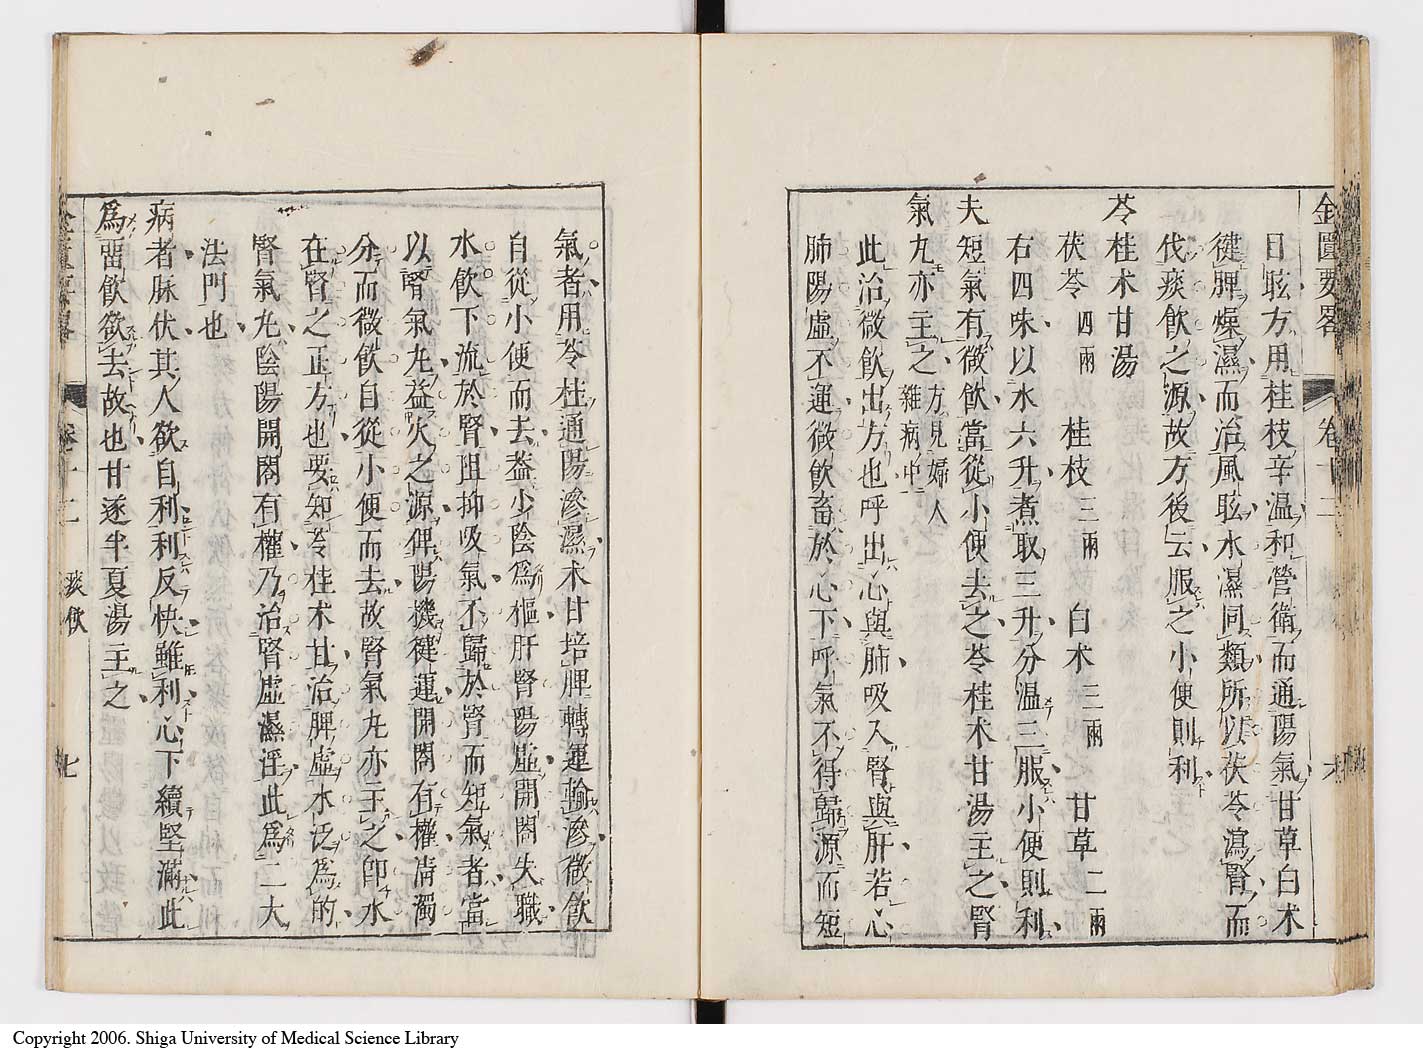 金匱要畧 卷十二 六
目眩方用桂枝辛温和營衛而通陽氣甘草白朮
健脾燥濕而治風眩水濕同類所以茯苓瀉腎而
伐痰飲之源故方後云服之小便則利
苓桂朮甘湯
茯苓四兩 桂枝三兩 白朮三兩 甘草二兩
右四味以水六升煮取三升分温三服小便則利
夫短氣有微飲當從小便去之苓桂朮甘湯主之腎
氣丸亦主之方見婦人雜病中
此治微飲出方也呼出心與肺吸入腎與肝若心
肺陽虛不運微飲畜於心下呼氣不得歸源而短
氣者用苓桂通陽滲濕朮甘培脾轉運輸滲微飲
自從小便而去盖少陰爲樞肝腎陽虛開闔失職
水飲下流於腎阻抑吸氣不歸於腎而短氣者當
以腎氣丸益火之源俾陽機健運開闔有權清濁
分而微飲自從小便而去故腎氣丸亦主之卽水
在腎之正方也要知苓桂朮甘治脾虛水泛爲的
腎氣丸陰陽開闔有權乃治腎虛濕淫此爲二大
法門也
病者脉伏其人欲自利利反快雖利心下續堅滿此
爲畱飲欲去故也甘遂半夏湯主之
金匱要畧 卷十二 痰飲 七
Copyright 2006. Shiga University of Medical Science Library